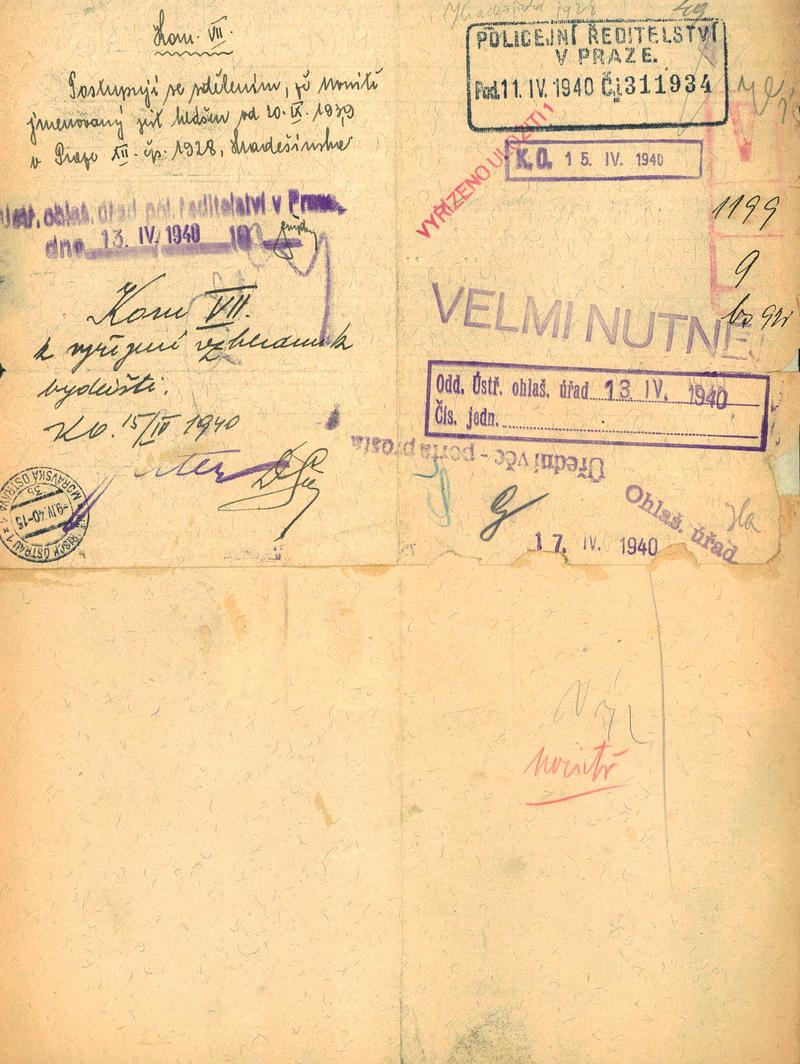 Kom. VII.
Postupuji se sdělením, že uvnitř
jmenovaný jest hlášen od 20. IX. 1939
v Praze XII. čp. 1928, Hradešínská
Ústř. ohlaš. úřad pol. ředitelství v Praze,
dne 13. IV. 1940
Kom VII.
k vyřízení vzhledem k
bydlišti.
K.O. 15/IV 1940
MORAVSKÁ OSTRAVA 1
3b
-9.IV.40-15
MÄHRISCH OSTRAU 1
Hradešínská 1928
POLICEJNÍ ŘEDITELSTVÍ
V PRAZE.
Pod. 11. IV. 1940 Čj. 311934
VYŘÍZENO ULOŽITI 1
K. O. 15. IV. 1940
V
1199
9
VELMI NUTNÉ
Odd. Ústř. ohlaš. úřad 13 IV. 1940
Čís. jedn.
Úřední věc - porta prosta
Ohlaš. úřad
17. IV. 1940
uvnitř